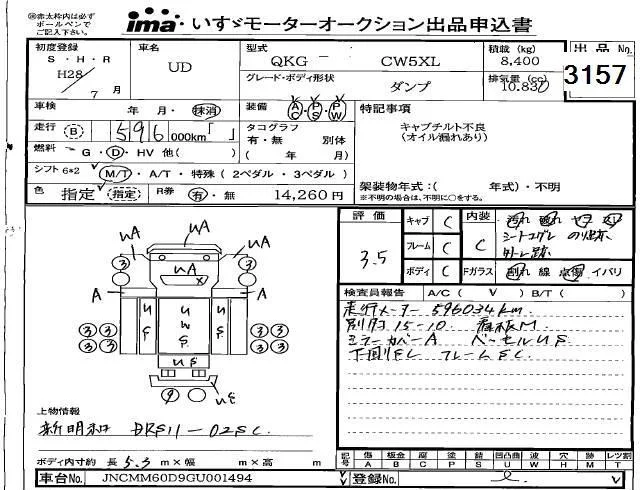 ㊟赤太枠内は必ず
ボールペンで
ご記入下さい。
ima いすゞモーターオークション出品申込書
初度登録 S・H・R H28年 7月
車名 UD
型式 QKG - CW5XL
積載 (kg) 8,400
出品 No. 3157
グレード・ボディ形状 ダンプ
排気量 (cc) 10.83
車検 年 月・抹消
装備 AC・PS・PW
特記事項
キャブチルト不良
(オイル漏れあり)
走行 B 596 000km「 」
タコグラフ
有・無 別体
( 年 月)
燃料 G・D・HV 他( )
シフト 6*2 M/T・A/T・特殊(2ペダル・3ペダル)
架装物年式:( 年式)・不明
※不明の場合は、不明に○をする。
色 指定 (指定) R券 有・無 14,260円
評価 3.5
キャブ C
フレーム C
ボディ C
内装 C
汚れ
シートコゲ
Fガラス 線 イバリ
検査員報告 A/C( V ) B/T( )
走行メーター 596034km
15-10
ミラーカバーA ベーセルUS
下回りSC フレームSC
UA UA
UA
UA
A A
③ ③
US UWS US
US
③③ ③③
③③ ③③
⑨
US
上物情報
新明和 DRS11-02SC
ボディ内寸約 長 5.3 m×幅 m×高 m
記号 傷 A 板金 B 腐 C 塗 P 錆 S 凹凸曲 U 波 W 穴 H 跡 M 欠 T レツ割
車台No. JNCMM60D9GU001494
登録No.